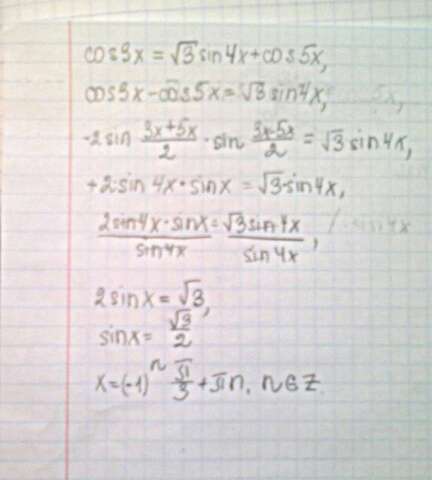 cos3x = √3 sin4x + cos5x,
cos3x - cos5x = √3 sin4x,
-2 sin (3x+5x)/2 · sin (3x-5x)/2 = √3 sin4x,
+2 sin 4x · sinx = √3 · sin4x,
(2sin4x · sinx)/(sin4x) = (√3 sin4x)/(sin4x),
2 sinx = √3,
sinx = √3/2
x = (-1)^n π/3 + πn, n ∈ Z.